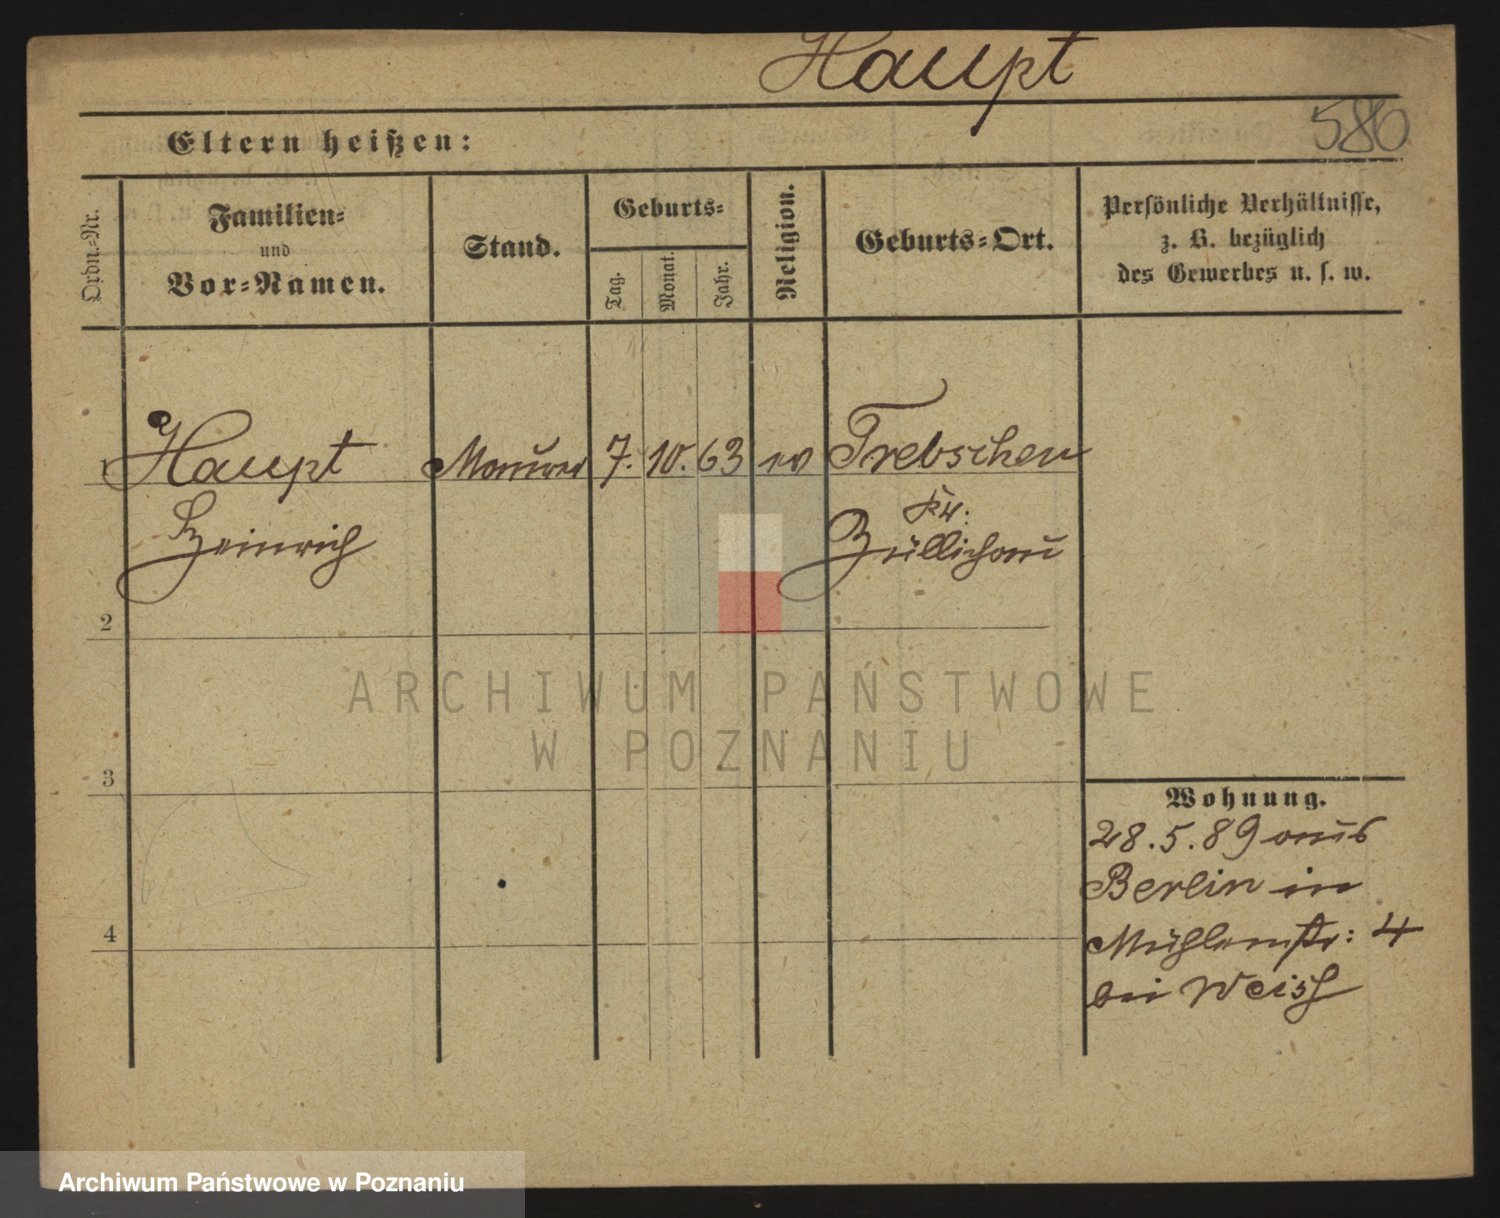 Haupt
586
Eltern heißen:
Ordn.-Nr.
Familien-
und
Vor-Namen.
Stand.
Geburts-
Tag.
Monat.
Jahr.
Religion.
Geburts-Ort.
Persönliche Verhältnisse,
z. B. bezüglich
des Gewerbes u. s. w.
1 Haupt Maurer 7. 10. 63 ev Trebschen
Heinrich
Kr.
Züllichau
2
3
4
Wohnung.
28.5.89 aus
Berlin in
Mühlenstr: 4
bei Weiß
ARCHIWUM PAŃSTWOWE
W POZNANIU
Archiwum Państwowe w Poznaniu